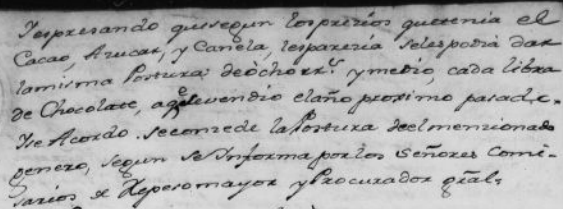 Y espresando que segun los prezios que tenia el
Cacao, Azucar, y Canela, les parezia se les podia dar
la misma Postura de ocho rr.^s y medio, cada libra
de Chocolate, a q.^e se vendio el año proximo pasado.
Y se Acordo se conzede la Postura de el menzionado
genero, segun se Informa por los Señores Comi-
sarios de Repeso mayor y Procurador gral.